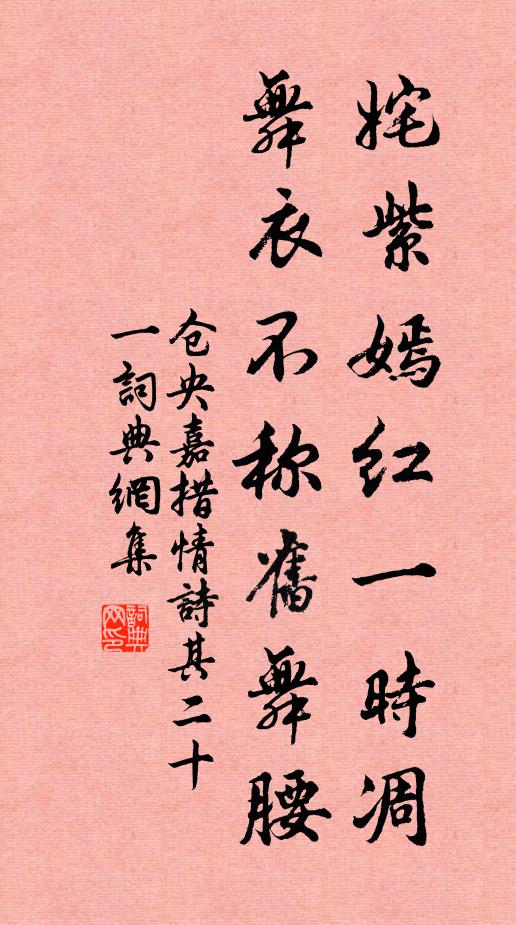 姹紫嫣红一時凋
舞衣不称舊舞腰
仓央嘉措情詩其二十
一詞典網集
詞典網印